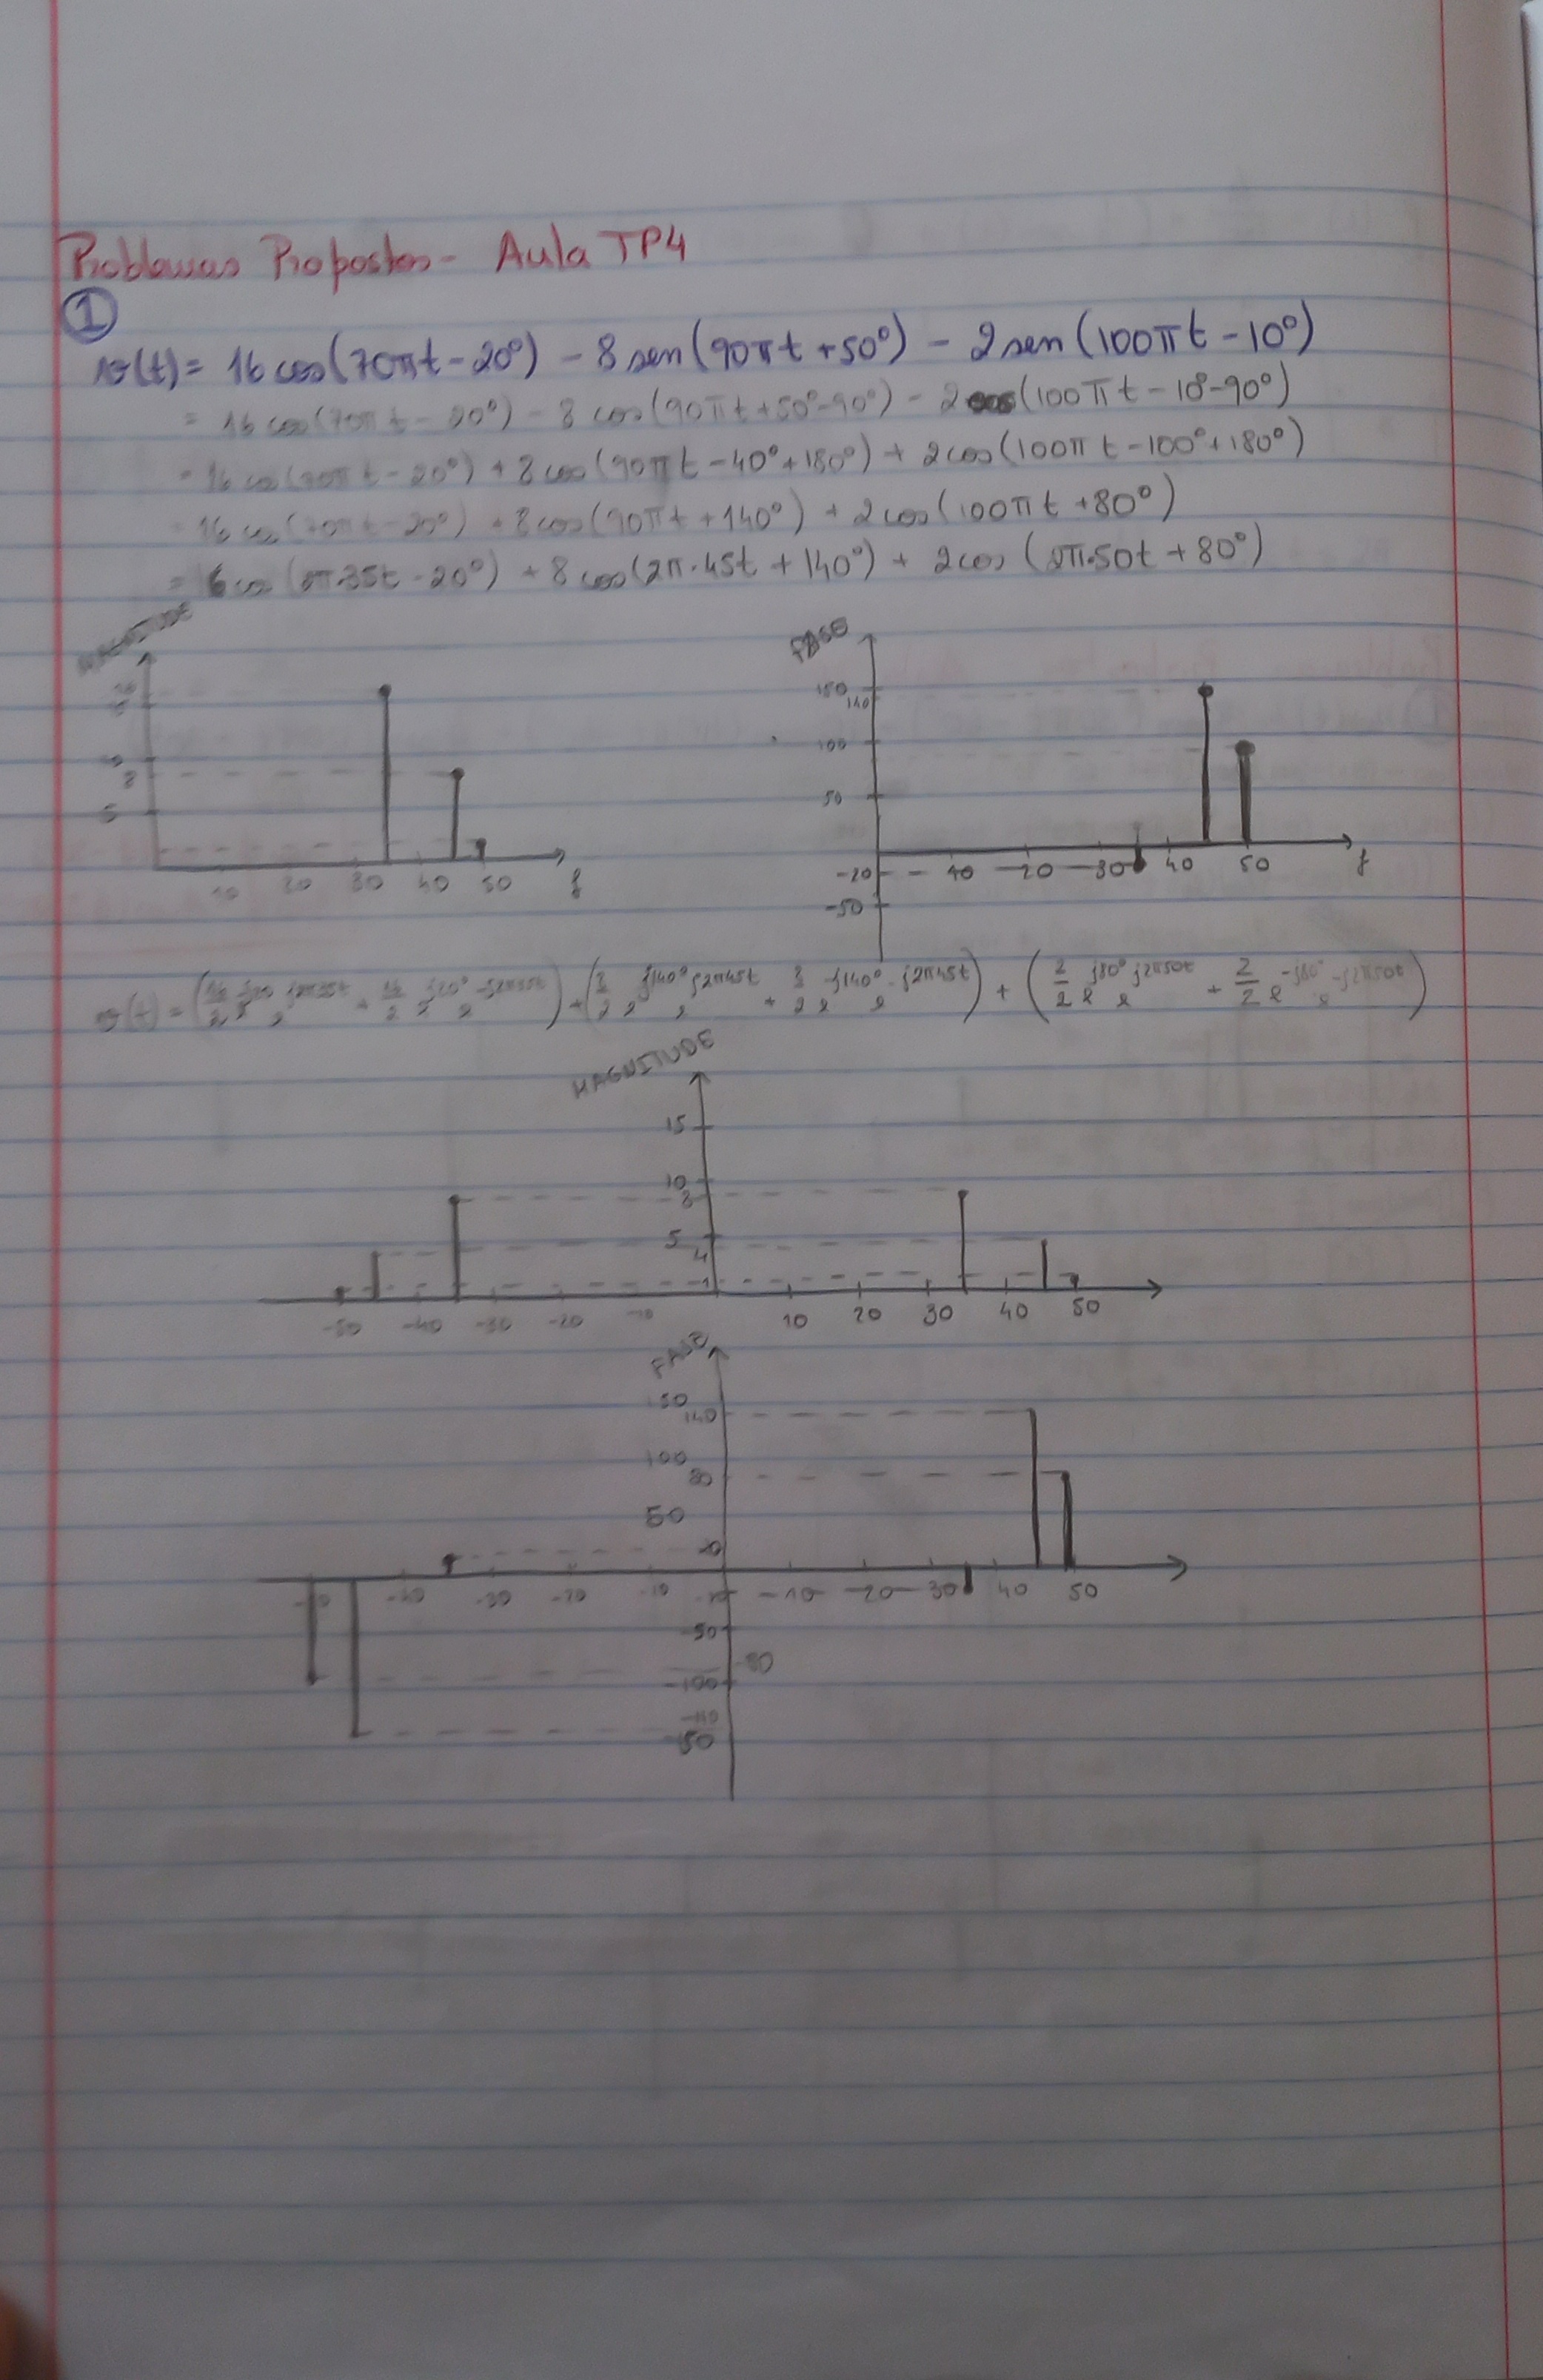 Problemas Propostos - Aula TP4
1
v(t) = 16 cos(70πt - 20°) - 8 sen(90πt + 50°) - 2 sen(100πt - 10°)
= 16 cos(70πt - 20°) - 8 cos(90πt + 50° - 90°) - 2 cos(100πt - 10° - 90°)
= 16 cos(70πt - 20°) + 8 cos(90πt - 40° + 180°) + 2 cos(100πt - 100° + 180°)
= 16 cos(70πt - 20°) + 8 cos(90πt + 140°) + 2 cos(100πt + 80°)
= 16 cos(2π·35t - 20°) + 8 cos(2π·45t + 140°) + 2 cos(2π·50t + 80°)
MAGNITUDE
8
5
10 20 30 40 50 f
FASE
150
140
100
50
-20 10 20 30 40 50 f
-50
v(t) = + (8/2 e^j140° e^j2π45t + 8/2 e^-j140° e^-j2π45t) + (2/2 e^j80° e^j2π50t + 2/2 e^-j80° e^-j2π50t)
MAGNITUDE
15
10
8
5
4
1
-50 -40 -30 -20 -10 10 20 30 40 50
FASE
150
140
100
80
50
20
-40 -30 -20 -10 10 20 30 40 50
-50
-80
-100
-140
-150